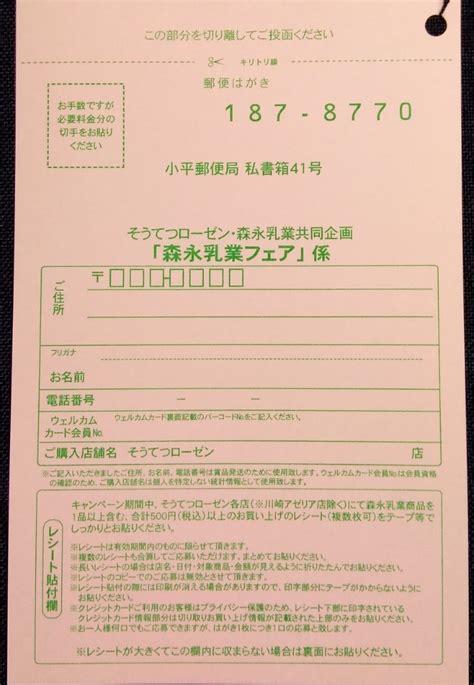 この部分を切り離してご投函ください
キリトリ線
郵便はがき
お手数ですが
必要料金分の
切手をお貼り
ください
187-8770
小平郵便局 私書箱41号
そうてつローゼン・森永乳業共同企画
「森永乳業フェア」係
ご住所
〒
フリガナ
お名前
電話番号 － －
ウェルカム
カード会員No.
ウェルカムカード裏面記載のバーコードNo.をご記入ください。
ご購入店舗名 そうてつローゼン 店
※ご記入いただきましたご住所、お名前、電話番号は賞品発送のために使用致します。ウェルカムカード会員No.は会員資格
の確認のため、ご購入店舗名は個人を特定しない統計情報として使用致します。
レシート貼付欄
キャンペーン期間中、そうてつローゼン各店（※川崎アゼリア店除く）にて森永乳業商品を
1品以上含む、合計500円（税込）以上のお買い上げのレシート（複数枚可）をテープ等で
しっかりとお貼りください。
※レシートは有効期間内のものに限らせて頂きます。
※複数のレシートも合算してご応募いただけます。まとめてお貼りください。
※長いレシートの場合は店名・日付・対象商品・金額が見えるように折りたたんでお貼りください。
※レシートのコピーでのご応募は無効とさせて頂きます。
※レシート貼付の際には印刷が消える場合がありますので、印字部分にテープがかからないように
お貼りください。
※クレジットカードご利用のお客様はプライバシー保護のため、レシート下部に印字されている
クレジットカード情報部分は切り取りお買い上げ情報が記載された上部のみをお貼りください。
※お一人様何口でもご応募できますが、はがき1枚につき1口の応募と致します。
※レシートが大きくてこの欄内に収まらない場合は裏面にお貼りください。